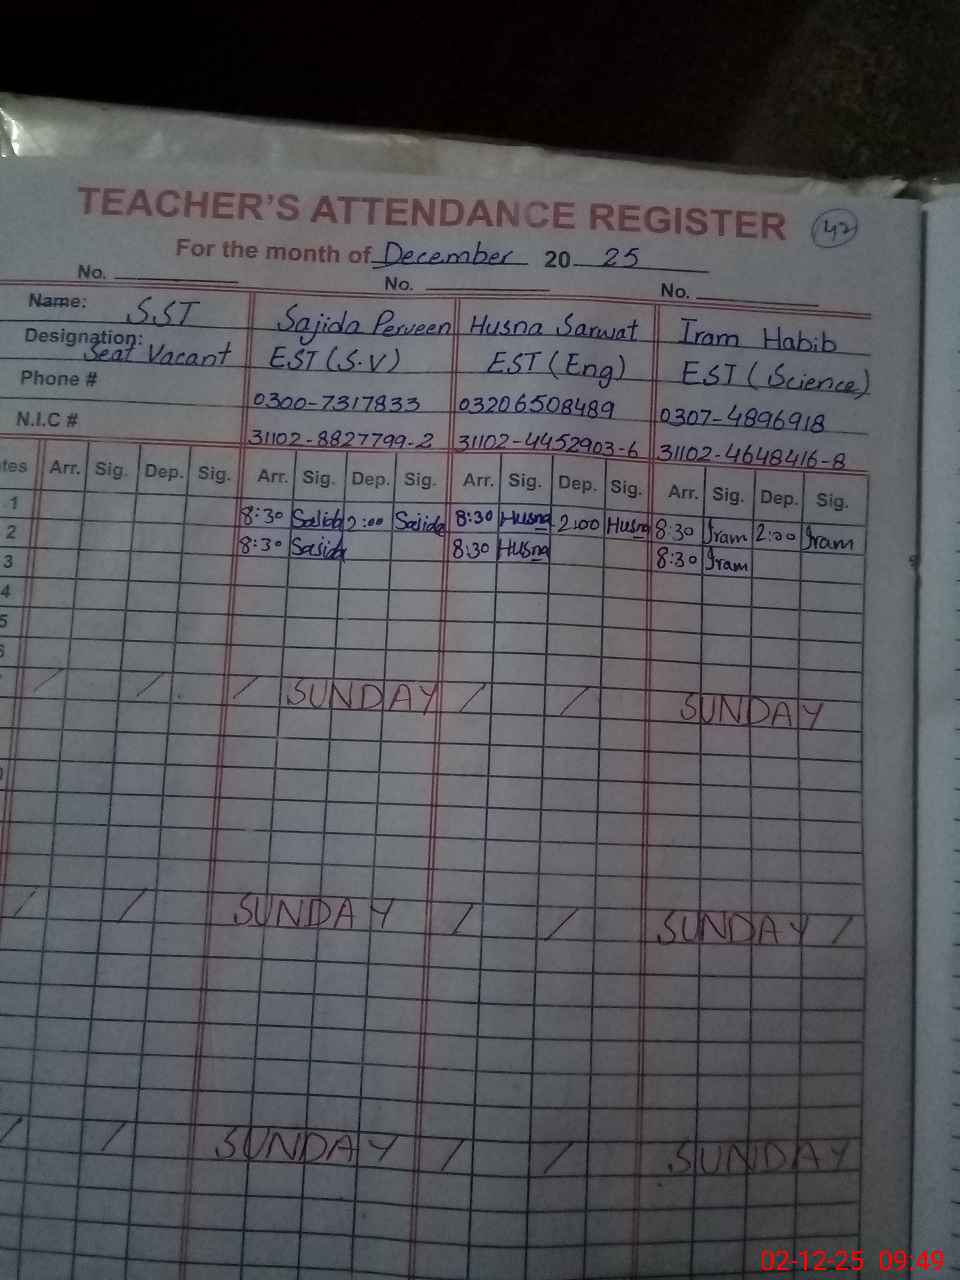 TEACHER'S ATTENDANCE REGISTER 42
For the month of December 20 25
No. No. No.
Name: SST Sajida Perveen Husna Sarwat Iram Habib
Designation: Seat Vacant EST (S.V) EST (Eng) EST (Science)
Phone # 0300-7317833 03206508489 0307-4896918
N.I.C # 31102-8827799-2 31102-4452903-6 31102-4648416-8
tes Arr. Sig. Dep. Sig. Arr. Sig. Dep. Sig. Arr. Sig. Dep. Sig. Arr. Sig. Dep. Sig.
1 8:30 Sajida 2:00 Sajida 8:30 Husna 2:00 Husna 8:30 Iram 2:00 Iram
2 8:30 Sajida 8:30 Husna 8:30 Iram
3
4
5
6
/ / / SUNDAY / / SUNDAY
/ / SUNDAY / / SUNDAY /
/ / SUNDAY / / SUNDAY
02-12-25 09:49